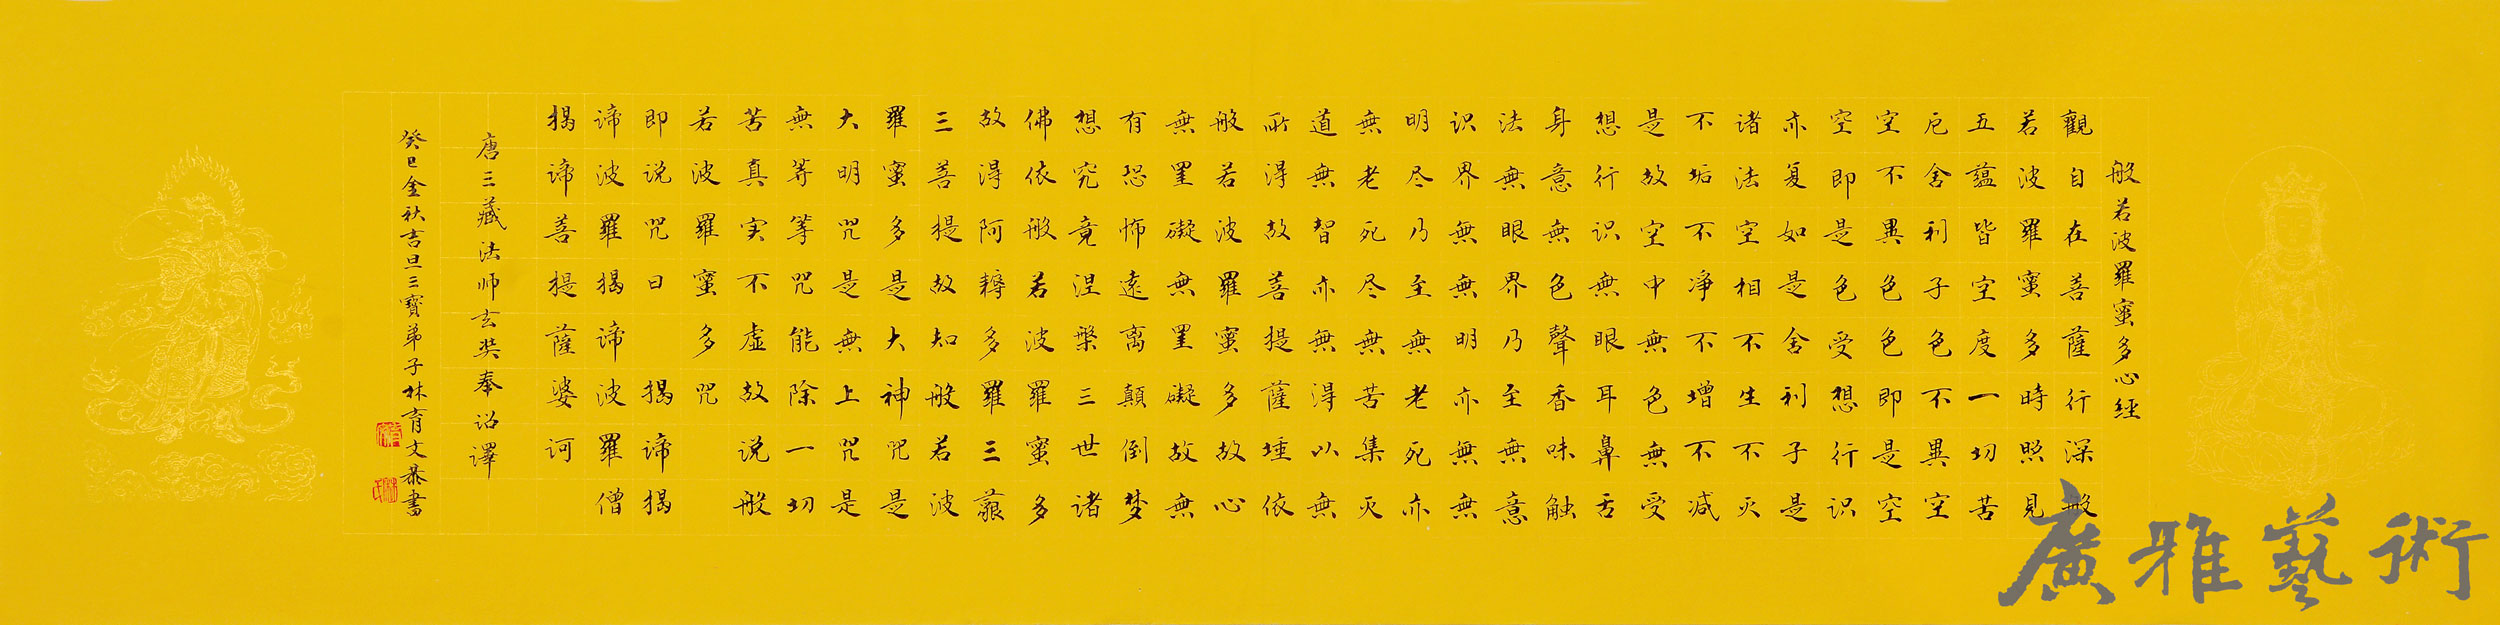 般若波羅蜜多心經
觀自在菩薩行深般
若波羅蜜多時照見
五蘊皆空度一切苦
厄舍利子色不異空
空不異色色即是空
空即是色受想行识
亦复如是舍利子是
诸法空相不生不灭
不垢不净不增不减
是故空中無色無受
想行识無眼耳鼻舌
身意無色聲香味触
法無眼界乃至無意
识界無無明亦無無
明尽乃至無老死亦
無老死尽無苦集灭
道無智亦無得以無
所得故菩提薩埵依
般若波羅蜜多故心
無罣礙無罣礙故無
有恐怖遠离顛倒梦
想究竟涅槃三世诸
佛依般若波羅蜜多
故得阿耨多羅三藐
三菩提故知般若波
羅蜜多是大神咒是
大明咒是無上咒是
無等等咒能除一切
苦真实不虛故说般
若波羅蜜多咒
即说咒曰 揭諦揭
諦波羅揭諦波羅僧
揭諦菩提薩婆诃
唐三藏法师玄奘奉诏譯
癸巳金秋吉旦三寶弟子林育文恭書
廣雅藝術